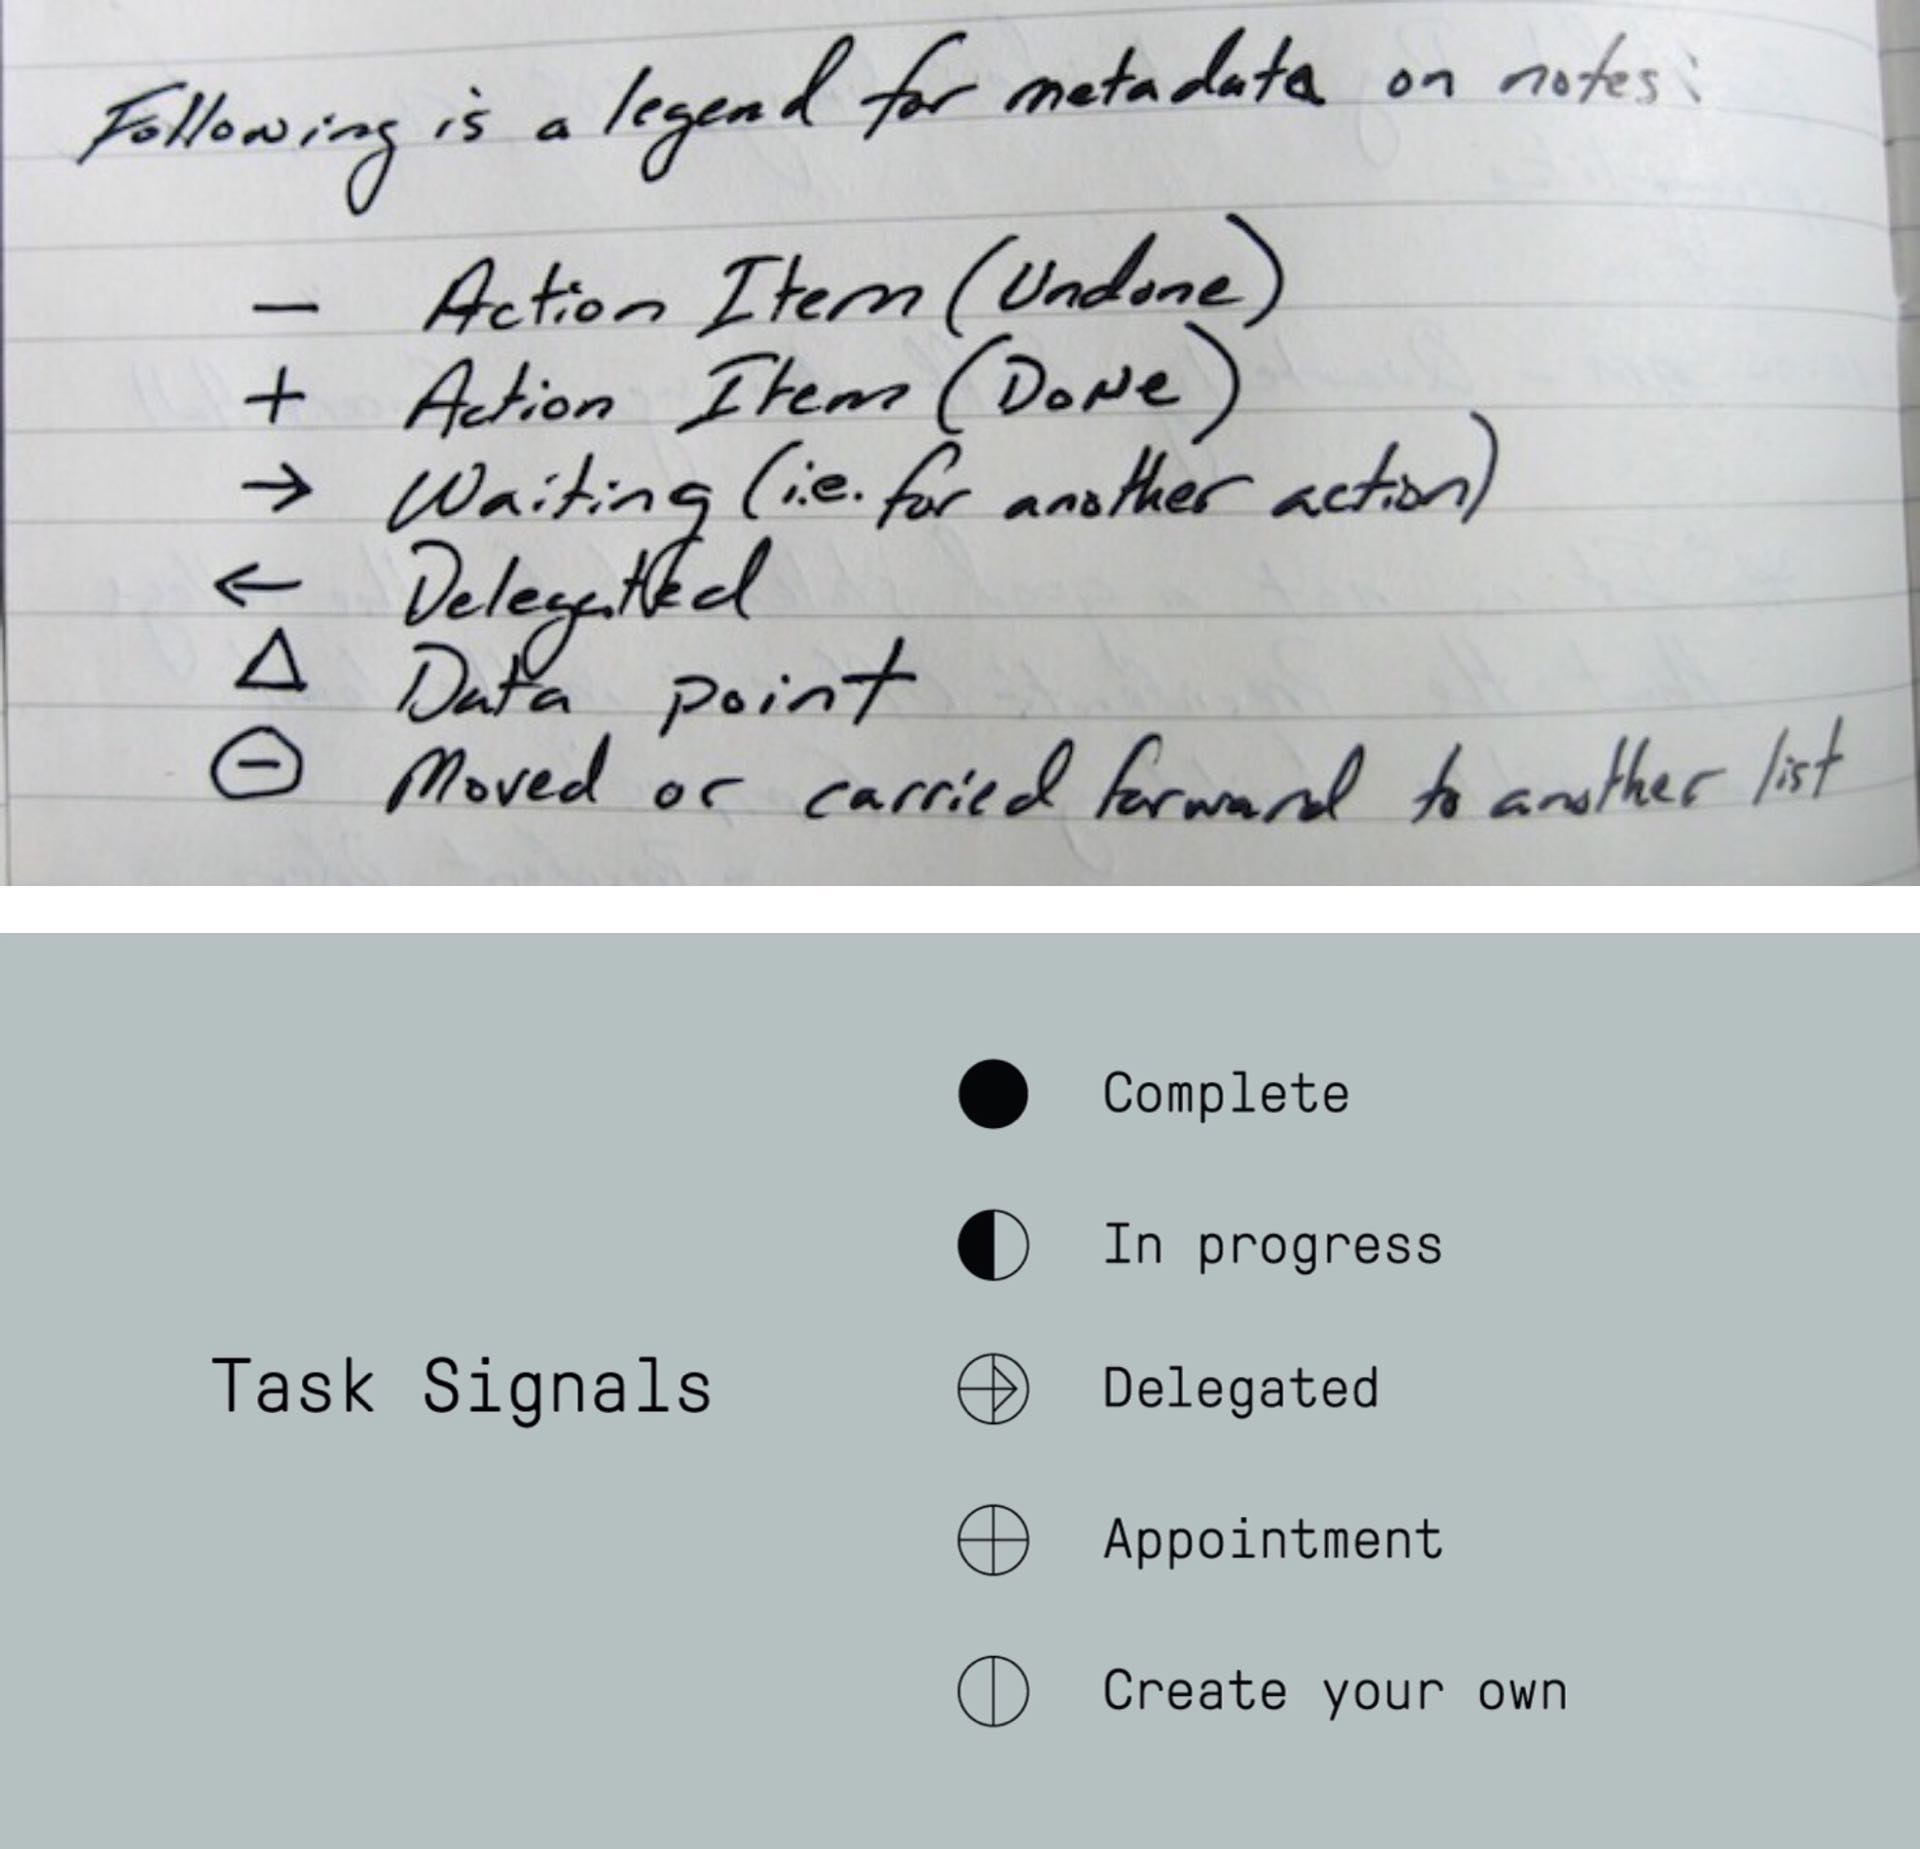 Following is a legend for metadata on notes:
− Action Item (Undone)
+ Action Item (Done)
→ Waiting (i.e. for another action)
← Delegated
△ Data point
⊖ Moved or carried forward to another list
Complete
In progress
Task Signals
Delegated
Appointment
Create your own